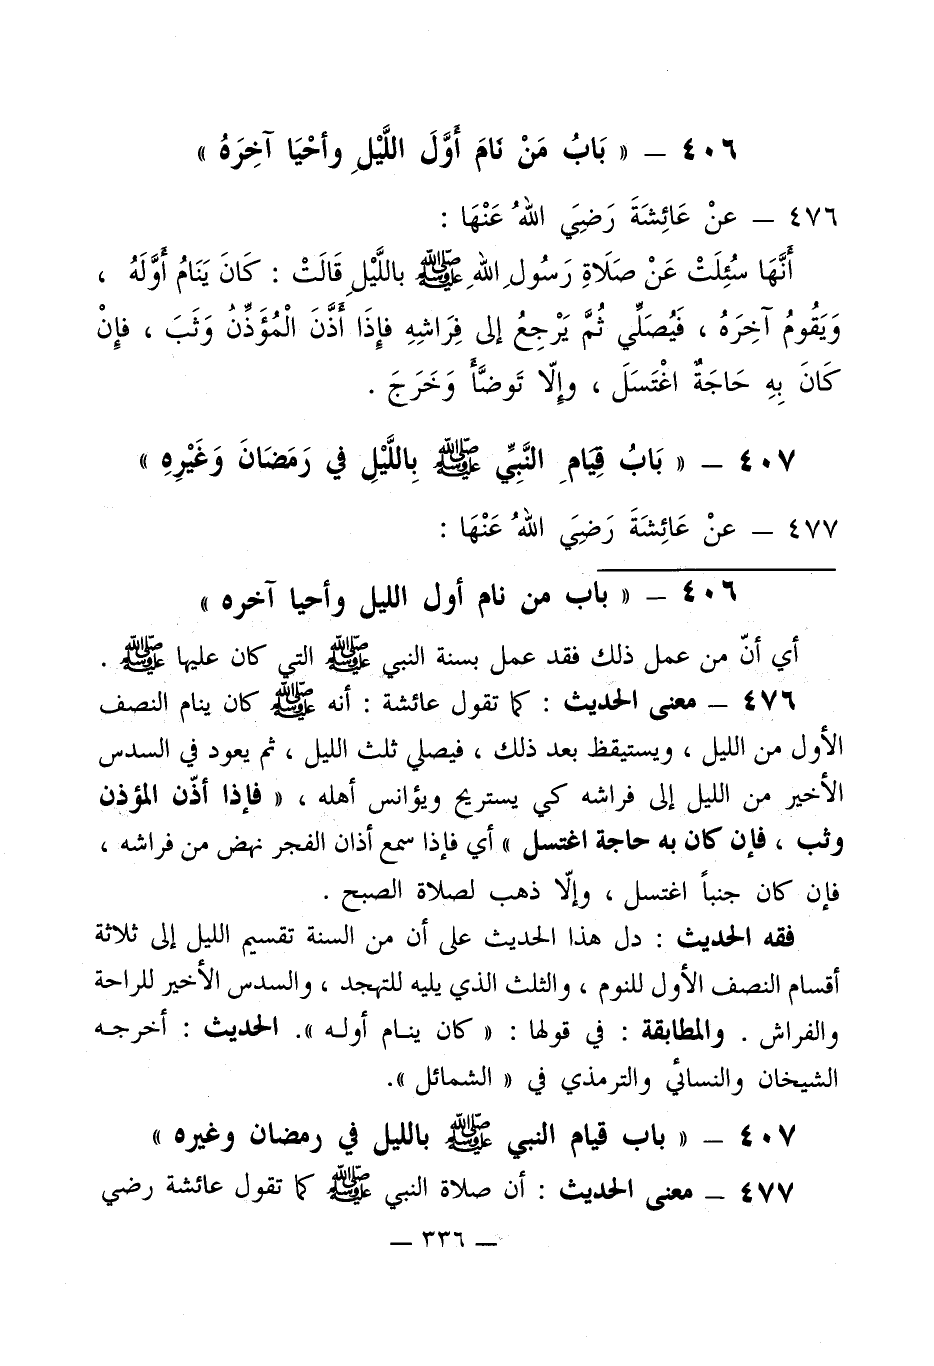 ٤٠٦ – « بَابُ مَنْ نَامَ أَوَّلَ اللَّيْلِ وأَحْيَا آخِرَهُ »
٤٧٦ – عنْ عَائِشَةَ رَضِيَ اللهُ عَنْهَا :
أَنَّهَا سُئِلَتْ عَنْ صَلَاةِ رَسُولِ اللهِ ﷺ باللَّيْلِ قَالَتْ : كَانَ يَنَامُ أَوَّلَهُ ،
وَيَقُومُ آخِرَهُ ، فَيُصَلِّي ثُمَّ يَرْجِعُ إلى فِرَاشِهِ فإذَا أذَّنَ الْمُؤَذِّنُ وَثَبَ ، فإنْ
كَانَ بِهِ حَاجَةٌ اغْتَسَلَ ، وإِلّا تَوضَّأَ وَخَرَجَ .
٤٠٧ – « بَابُ قِيَامِ النَّبِيِّ ﷺ بِاللَّيْلِ في رَمَضَانَ وَغَيْرِهِ »
٤٧٧ – عنْ عَائِشَةَ رَضِيَ اللهُ عَنْهَا :
٤٠٦ – « باب من نام أول الليل وأحيا آخره »
أي أنّ من عمل ذلك فقد عمل بسنة النبي ﷺ التي كان عليها ﷺ .
٤٧٦ – معنى الحديث : كما تقول عائشة : أنه ﷺ كان ينام النصف
الأول من الليل ، ويستيقظ بعد ذلك ، فيصلي ثلث الليل ، ثم يعود في السدس
الأخير من الليل إلى فراشه كي يستريح ويؤانس أهله ، « فإذا أذّن المؤذن
وثب ، فإن كان به حاجة اغتسل » أي فإذا سمع أذان الفجر نهض من فراشه ،
فإن كان جنباً اغتسل ، وإلّا ذهب لصلاة الصبح .
فقه الحديث : دل هذا الحديث على أن من السنة تقسيم الليل إلى ثلاثة
أقسام النصف الأول للنوم ، والثلث الذي يليه للتهجد ، والسدس الأخير للراحة
والفراش . والمطابقة : في قولها : « كان ينام أوله ». الحديث : أخرجه
الشيخان والنسائي والترمذي في « الشمائل ».
٤٠٧ – « باب قيام النبي ﷺ بالليل في رمضان وغيره »
٤٧٧ – معنى الحديث : أن صلاة النبي ﷺ كما تقول عائشة رضي
– ٣٣٦ –